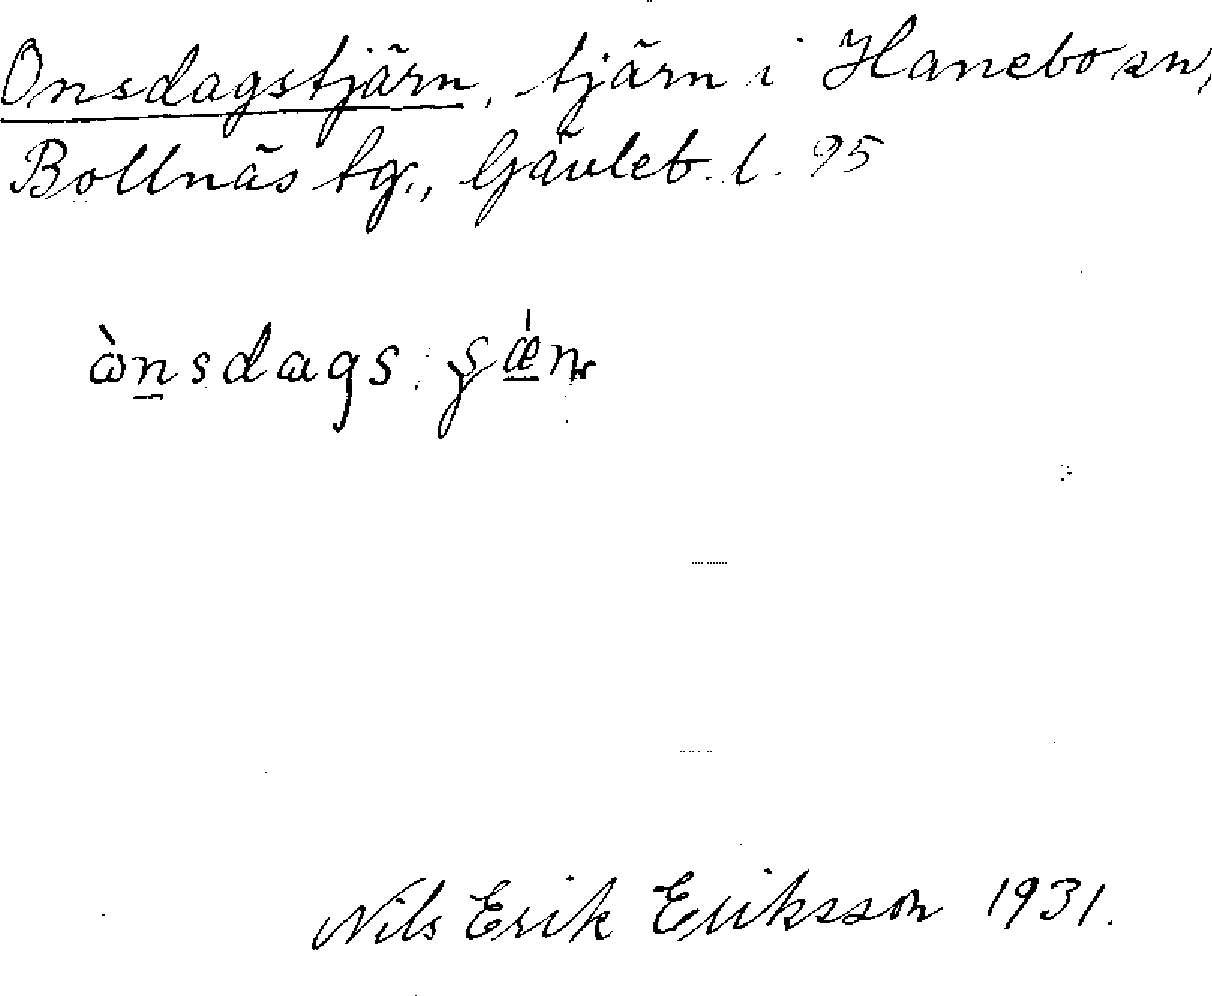 Onsdagstjärn, tjärn i Hanebo sn,
Bollnäs tg., Gävleb. l. 95
ὼnsdags
Nils Erik Eriksson 1931.